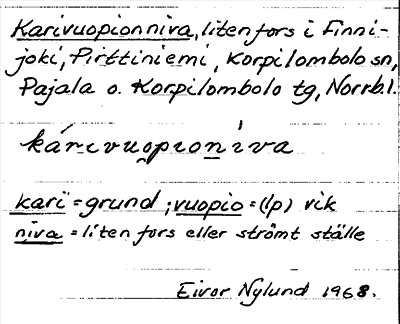 Karivuopionniva, liten fors i Finni-
joki, Pirttiniemi, Korpilombolo sn,
Pajala o. Korpilombolo tg, Norrb.l.
kárivuopionìva
kari = grund ; vuopio = (lp) vik
niva = liten fors eller strömt ställe
Eivor Nylund 1968.